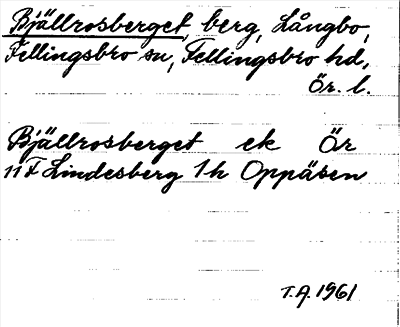 Bjällrosberget, berg, Långbo,
Fellingsbro sn, Fellingsbro hd,
Ör. l.
Bjällrosberget ek Ör
11 F Lindesberg 1h Oppåsen
T.A. 1961